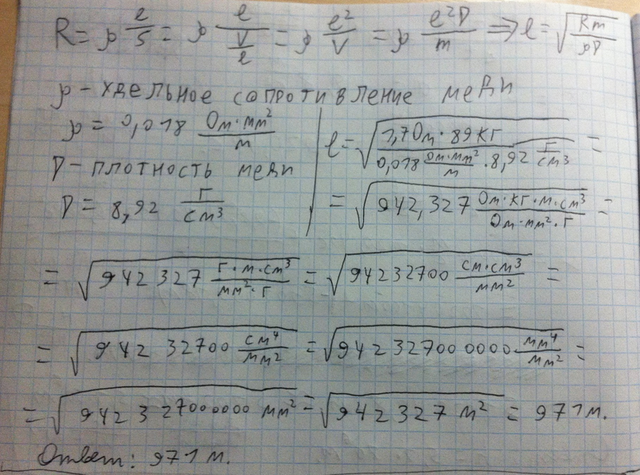 R = ρ l/S = ρ l/(V/l) = ρ l²/V = ρ l²D/m ⇒ l = √(Rm/ρD)
ρ - удельное сопротивление меди
ρ = 0,018 Ом·мм²/м
D - плотность меди
D = 8,92 г/см³
l = √(1,7 Ом · 89 кг / (0,018 Ом·мм²/м · 8,92 г/см³)) =
= √(942,327 Ом·кг·м·см³/(Ом·мм²·г)) =
= √(942327 г·м·см³/(мм²·г)) = √(94232700 см·см³/мм²) =
= √(94232700 см⁴/мм²) = √(942327000000 мм⁴/мм²) =
= √(942327000000 мм²) = √(942327 м²) = 971 м.
Ответ: 971 м.